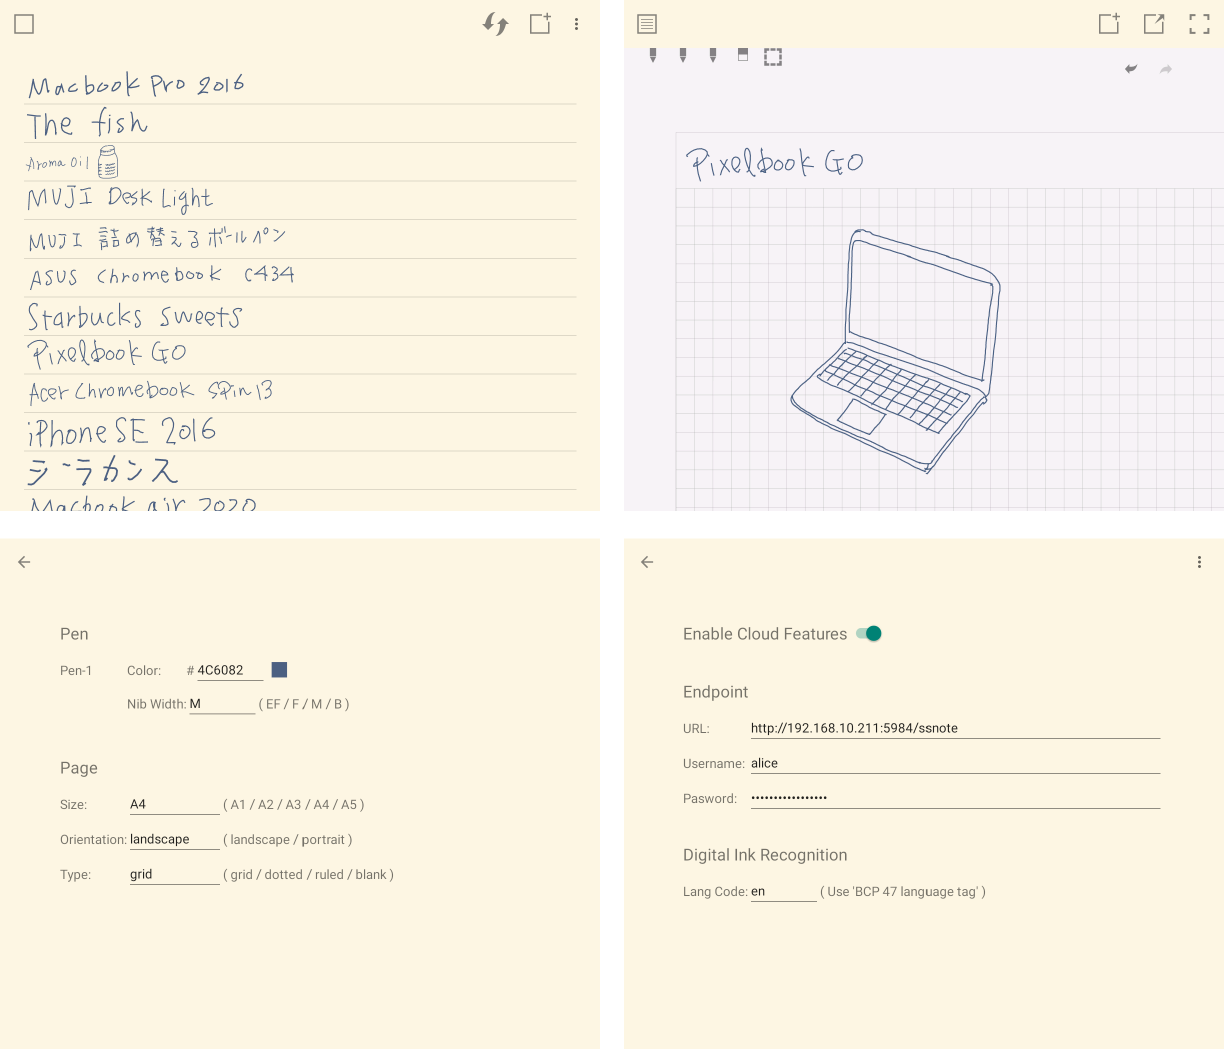 Macbook Pro 2016
The fish
Aroma Oil
MUJI Desk Light
MUJI 詰め替えるボールペン
ASUS Chromebook C434
Starbucks sweets
Pixelbook GO
Acer Chromebook Spin 13
iPhone SE 2016
シーラカンス
Macbook air 2020
Pixelbook GO
Pen
Pen-1 Color: # 4C6082
Nib Width: M ( EF / F / M / B )
Page
Size: A4 ( A1 / A2 / A3 / A4 / A5 )
Orientation: landscape ( landscape / portrait )
Type: grid ( grid / dotted / ruled / blank )
Enable Cloud Features
Endpoint
URL: http://192.168.10.211:5984/ssnote
Username: alice
Pasword: •••••••••••••••••
Digital Ink Recognition
Lang Code: en ( Use 'BCP 47 language tag' )